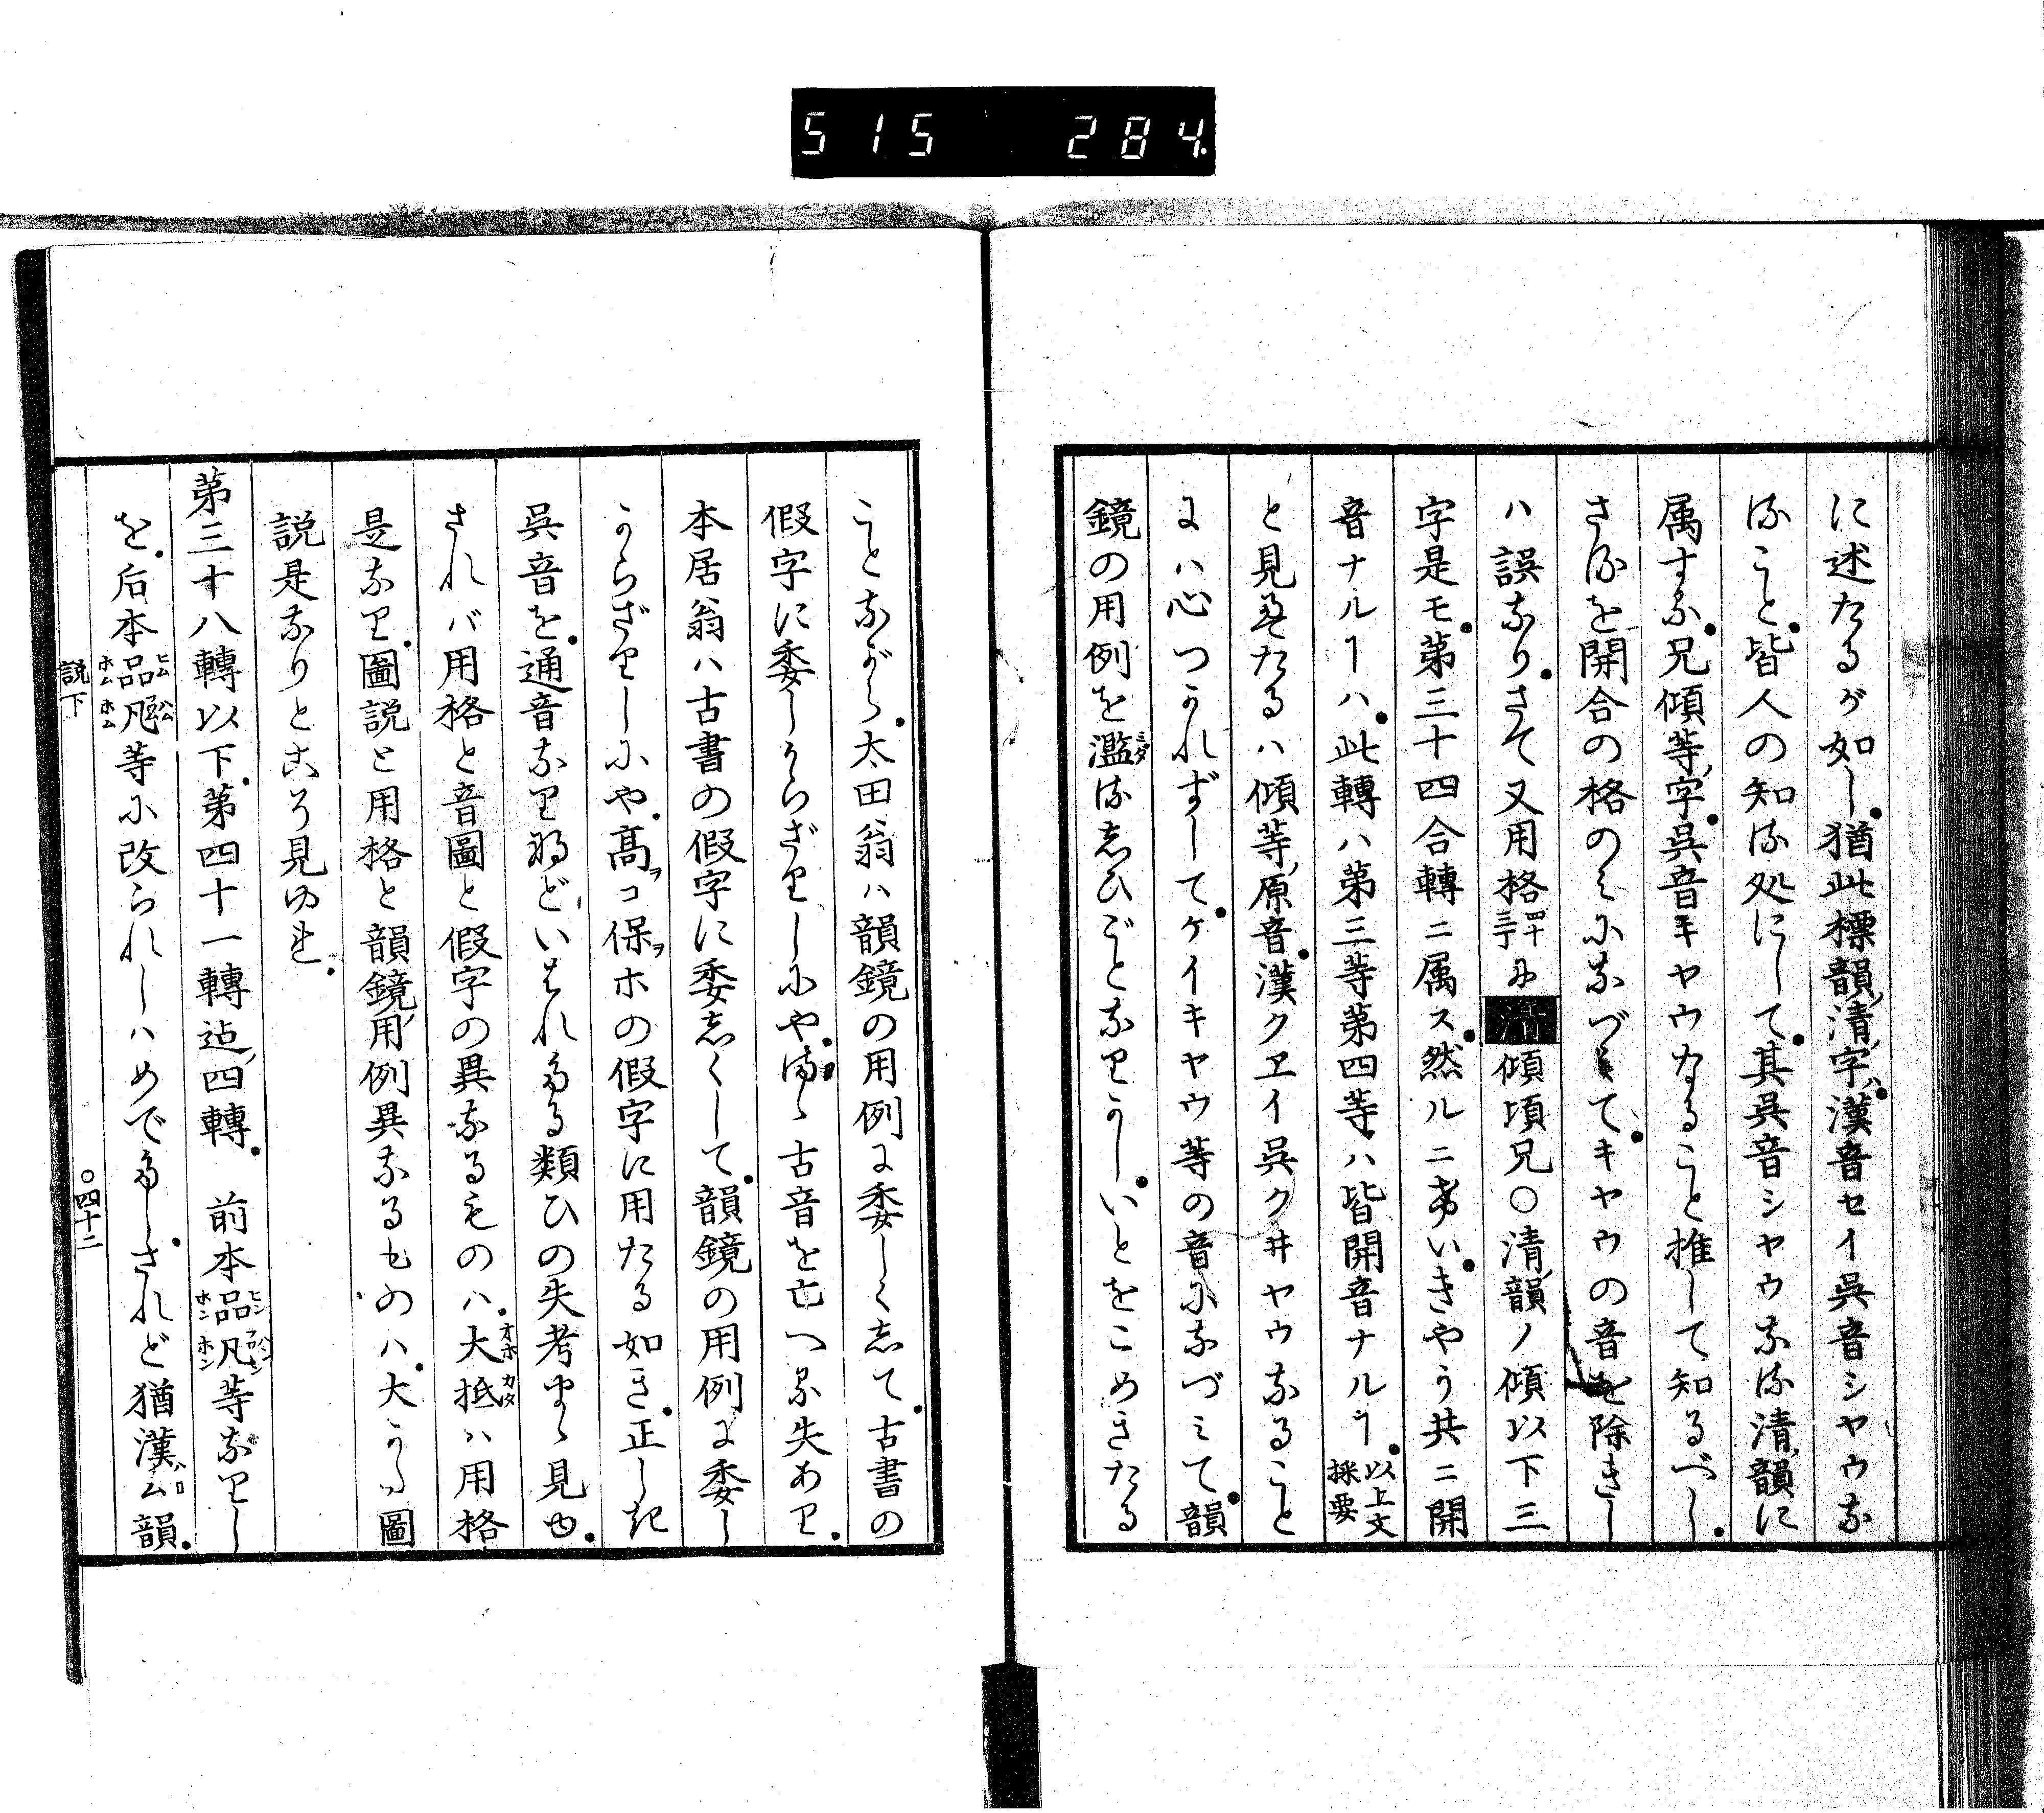 515 284
に述たるが如し。猶此標韻清字ハ。漢音セイ呉音シヤウな
ること。皆人の知る処にして。其呉音シヤウなる清韻に
属する。兄傾等字。呉音キヤウなること推して知るべし。
さるを開合の格のみになづミて。キヤウの音を除きし
ハ誤なり。さて又用格四十三丁に清傾頃兄〇清韻ノ傾以下三
字是モ。第三十四合轉ニ属ス。然ルニけい。きやう共ニ開
音ナルヿハ。此轉ハ第三等第四等ハ皆開音ナルヿ。以上文採要
と見えたるハ傾等原音。漢クヱイ呉クヰヤウなること
にハ心つかれずして。ケイキヤウ等の音になづミて。韻
鏡の用例を濫ミダるしひごとなりかし。いとをこめきたる
ことながら。太田翁ハ韻鏡の用例に委しくして。古書の
假字に委しからざりしにや。まゝ古音を亡へる失あり。
本居翁ハ古書の假字に委しくして。韻鏡の用例に委し
からざりしにや。高コヲ保ホヲの假字に用たる如き。正しき
呉音を。通音なりなどいはれたる類ひの失考まゝ見ゆ。
されバ用格と音圖と假字の異なるものハ。大抵オホカタハ用格
是なり。圖説と用格と韻鏡用例異なるものハ。大かた圖
説是なりとこそ見ゆれ。
第三十八轉以下。第四十一轉迠四轉。 前本品ヒンホン凡ハンホン等なりし
を。后本品ヒムホム凡ハムホム等に改られしハめでたし。されど猶漢ム韻。
説下 〇四十二